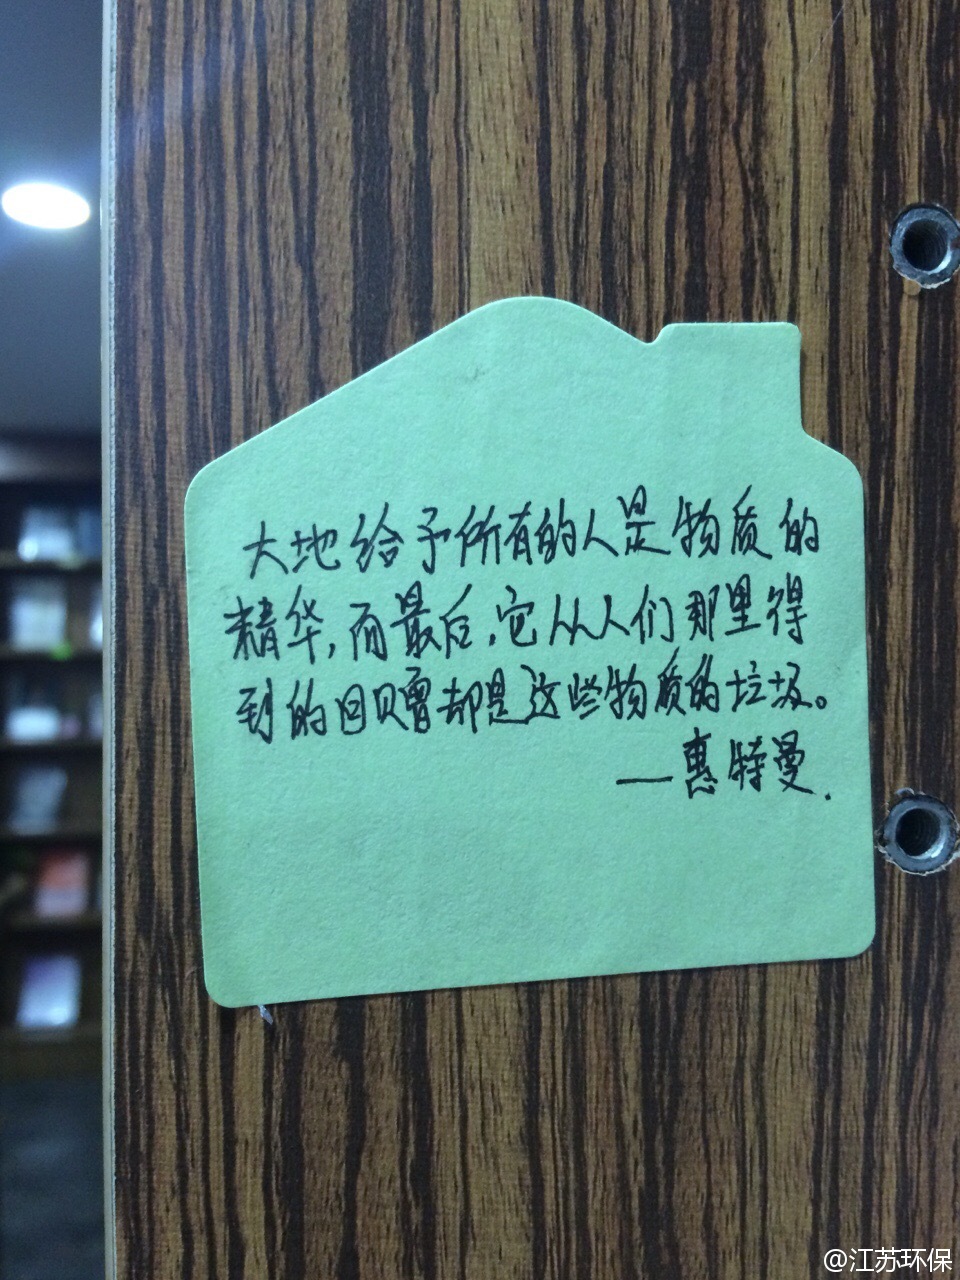 大地给予所有的人是物质的
精华,而最后,它从人们那里得
到的回赠却是这些物质的垃圾。
—惠特曼.
@江苏环保